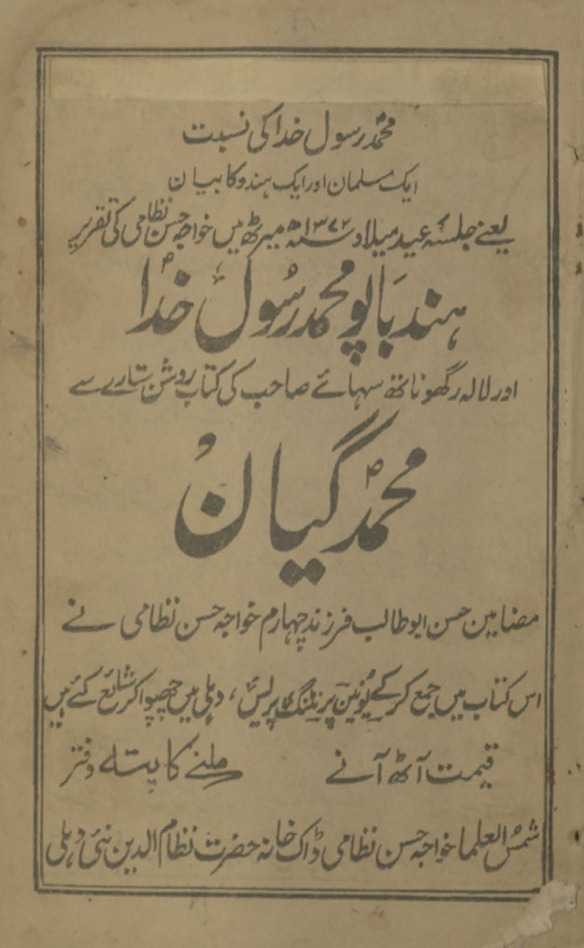 محمدؐ رسول خدا کی نسبت
ایک مسلمان اور ایک ہندو کا بیان
یعنے جلسۂ عید میلاد سنہ ۱۳۷۲ھ میرٹھ میں خواجہ حسن نظامی کی تقریر
ہند باپو محمدؐ رسول خدا
اور لالہ رگھوناتھ سہائے صاحب کی کتاب روشن ستارے سے
محمدؐ گیان
مضامین حسن ابو طالب فرزند چہارم خواجہ حسن نظامی نے
اس کتاب میں جمع کر کے یونین پرنٹنگ پریس، دہلی میں چھپوا کر شایع کئے ہیں
قیمت آٹھ آنے ملنے کا پتہ دفتر
شمس العلما خواجہ حسن نظامی ڈاک خانہ حضرت نظام الدین نئی دہلی